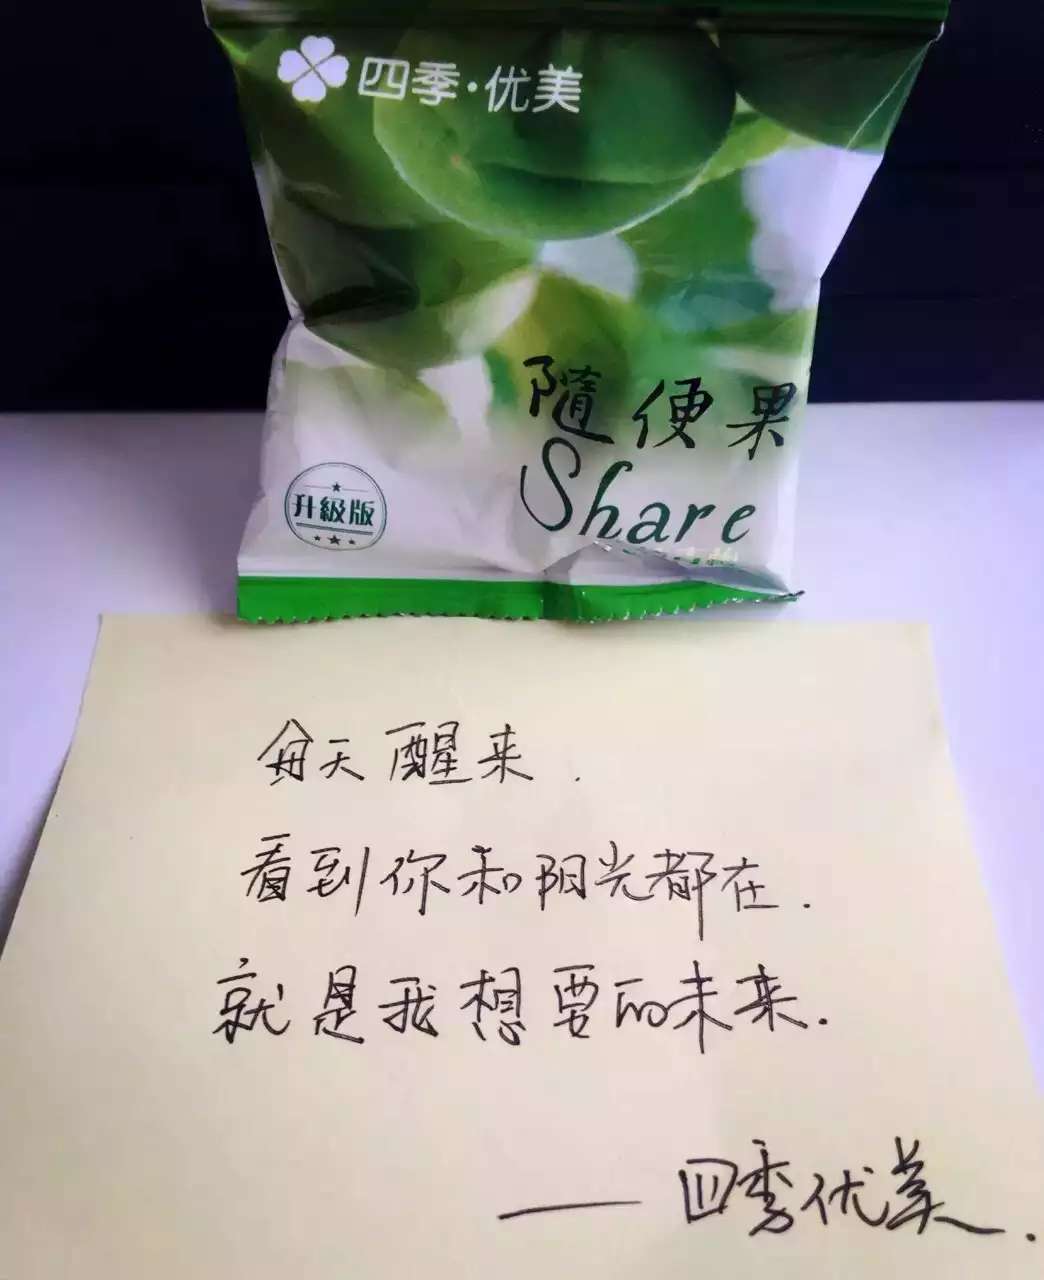 四季·优美
隨便果
Share
升級版
每天醒来.
看到你和阳光都在.
就是我想要的未来.
——四季优美.